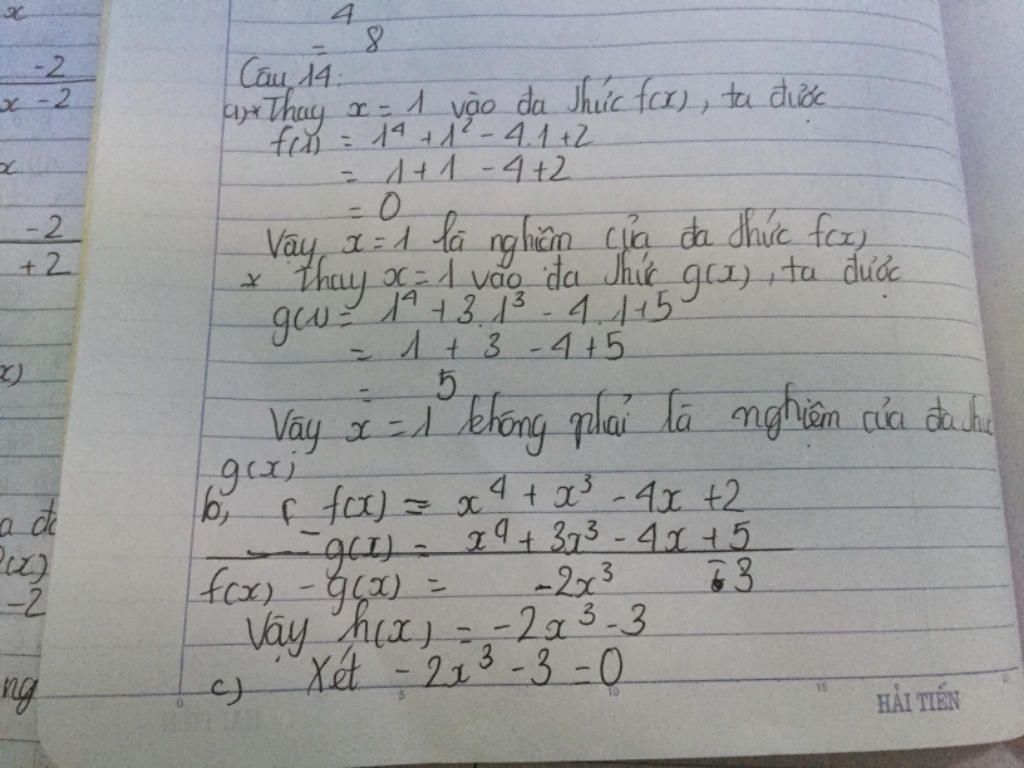 x
-2
x - 2
x
-2
+ 2
x)
a đc
2(x)
-2
ng
4
= 8
Câu 14:
a) * Thay x = 1 vào đa thức f(x), ta được
f(1) = 1⁴ + 1² - 4.1 + 2
= 1 + 1 - 4 + 2
= 0
Vậy x = 1 là nghiệm của đa thức f(x)
* Thay x = 1 vào đa thức g(x), ta được
g(1) = 1⁴ + 3.1³ - 4.1 + 5
= 1 + 3 - 4 + 5
= 5
Vậy x = 1 không phải là nghiệm của đa thức
g(x)
b, f(x) = x⁴ + x³ - 4x + 2
- g(x) = x⁴ + 3x³ - 4x + 5
f(x) - g(x) = -2x³ - 3
Vậy h(x) = -2x³ - 3
c) Xét -2x³ - 3 = 0
0 5 10 15
HẢI TIẾN